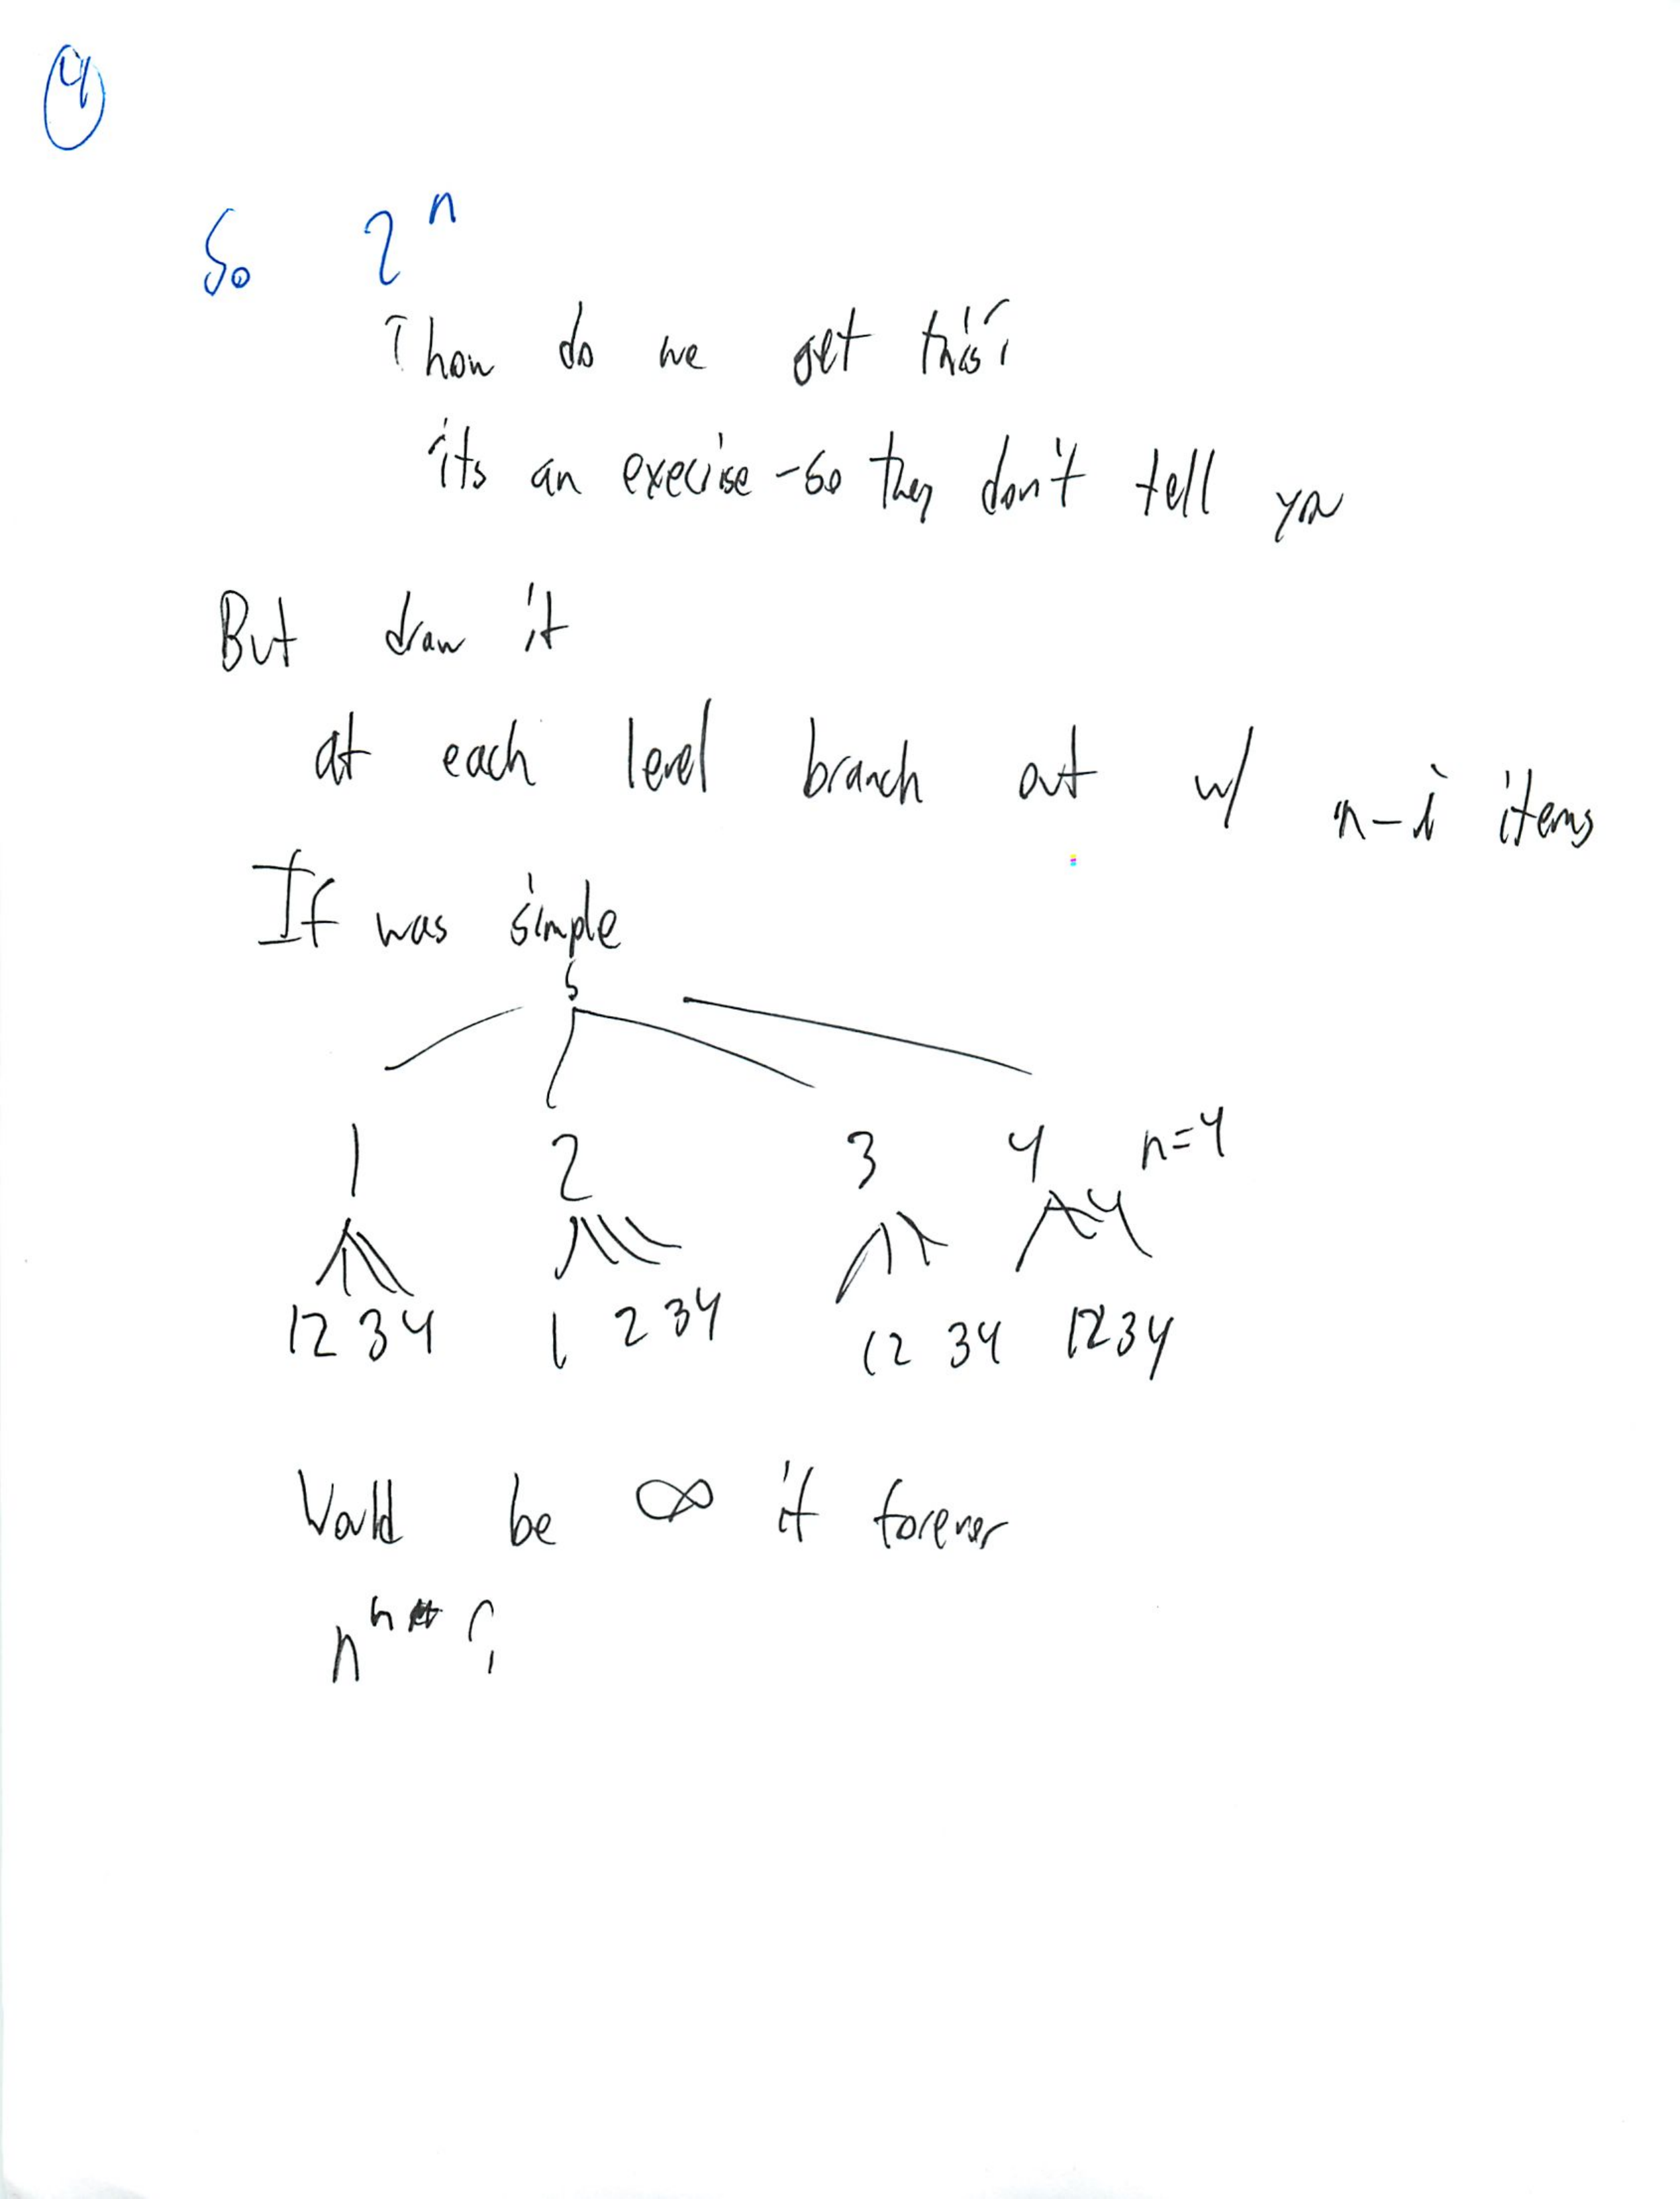 4
So 2^n
how do we get this?
its an execise - so they don't tell you
But draw it
at each level branch out w/ n-i items
If was simple
s
1 2 3 4 n=4
1 2 3 4 1 2 3 4 1 2 3 4 1 2 3 4
Would be ∞ if forever
n^n ?